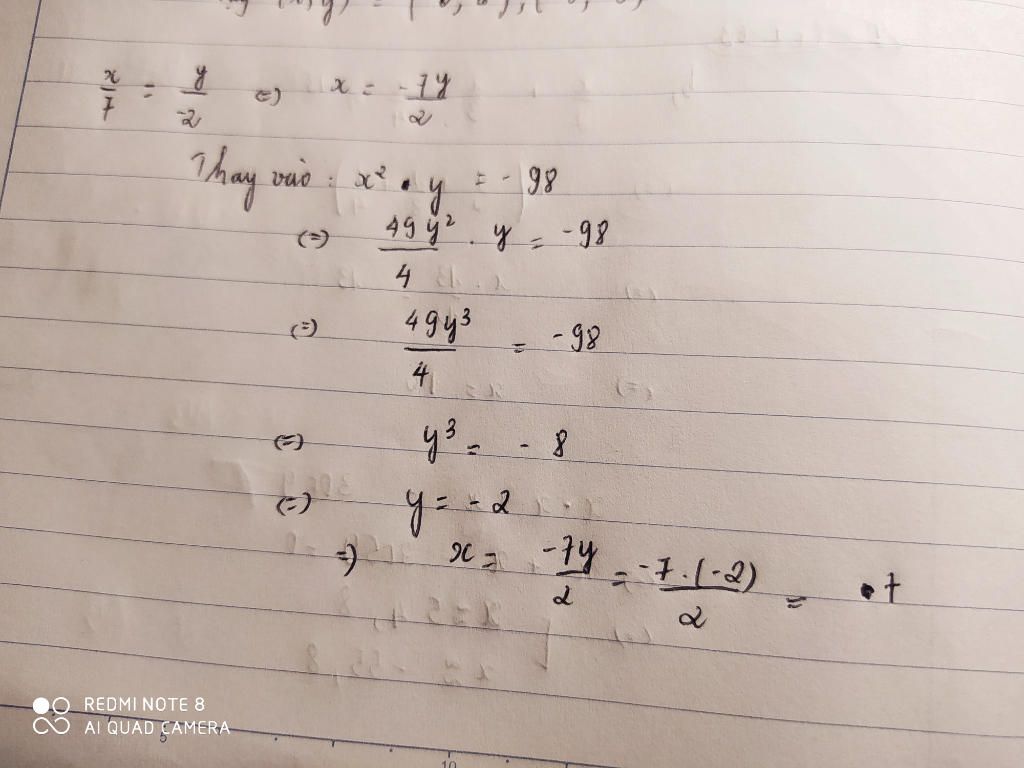 x/7 = y/-2 (=) x = -7y/2
Thay vào : x² . y = - 98
(=) 49y²/4 . y = -98
(=) 49y³/4 = -98
(=) y³ = - 8
(=) y = - 2
=) x = -7y/2 = -7.(-2)/2 = 7
REDMI NOTE 8
AI QUAD CAMERA
5
10